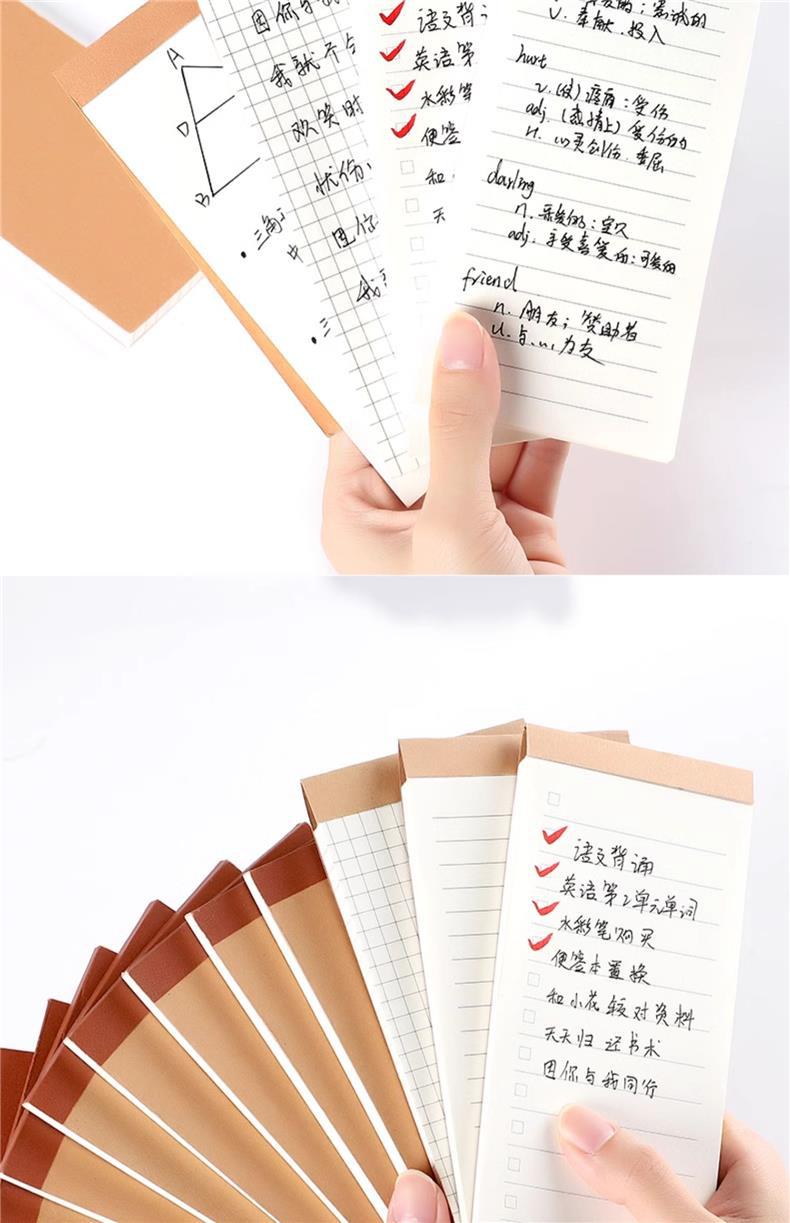 A
D
B
因你与我
我就不会
欢笑时
忧伤
因你
我
三角
中
三
语文背诵
英语第
水彩笔
便签
和
天
的
v. 奉献.投入
hurt
v. (使)疼痛:受伤
adj. (感情上)受伤的
n. 心灵创伤.委屈
darling
n. 亲爱的:宝贝
adj. 可爱的
friend
n. 朋友; 赞助者
v. 与...为友
语文背诵
英语第2单元单词
水彩笔购买
便签本置换
和小花较对资料
天天归还书术
因你与我同行